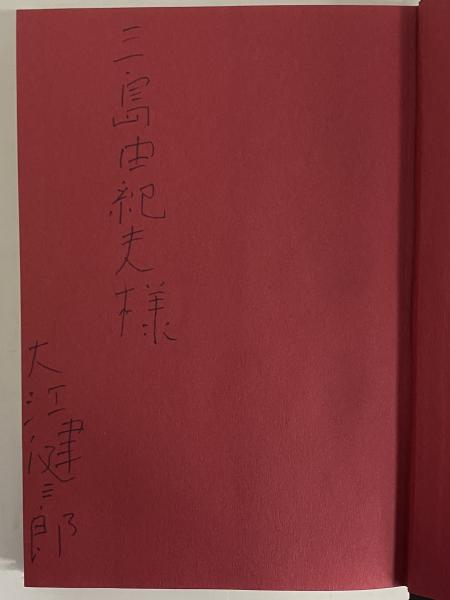 三島由紀夫様
大江健三郎